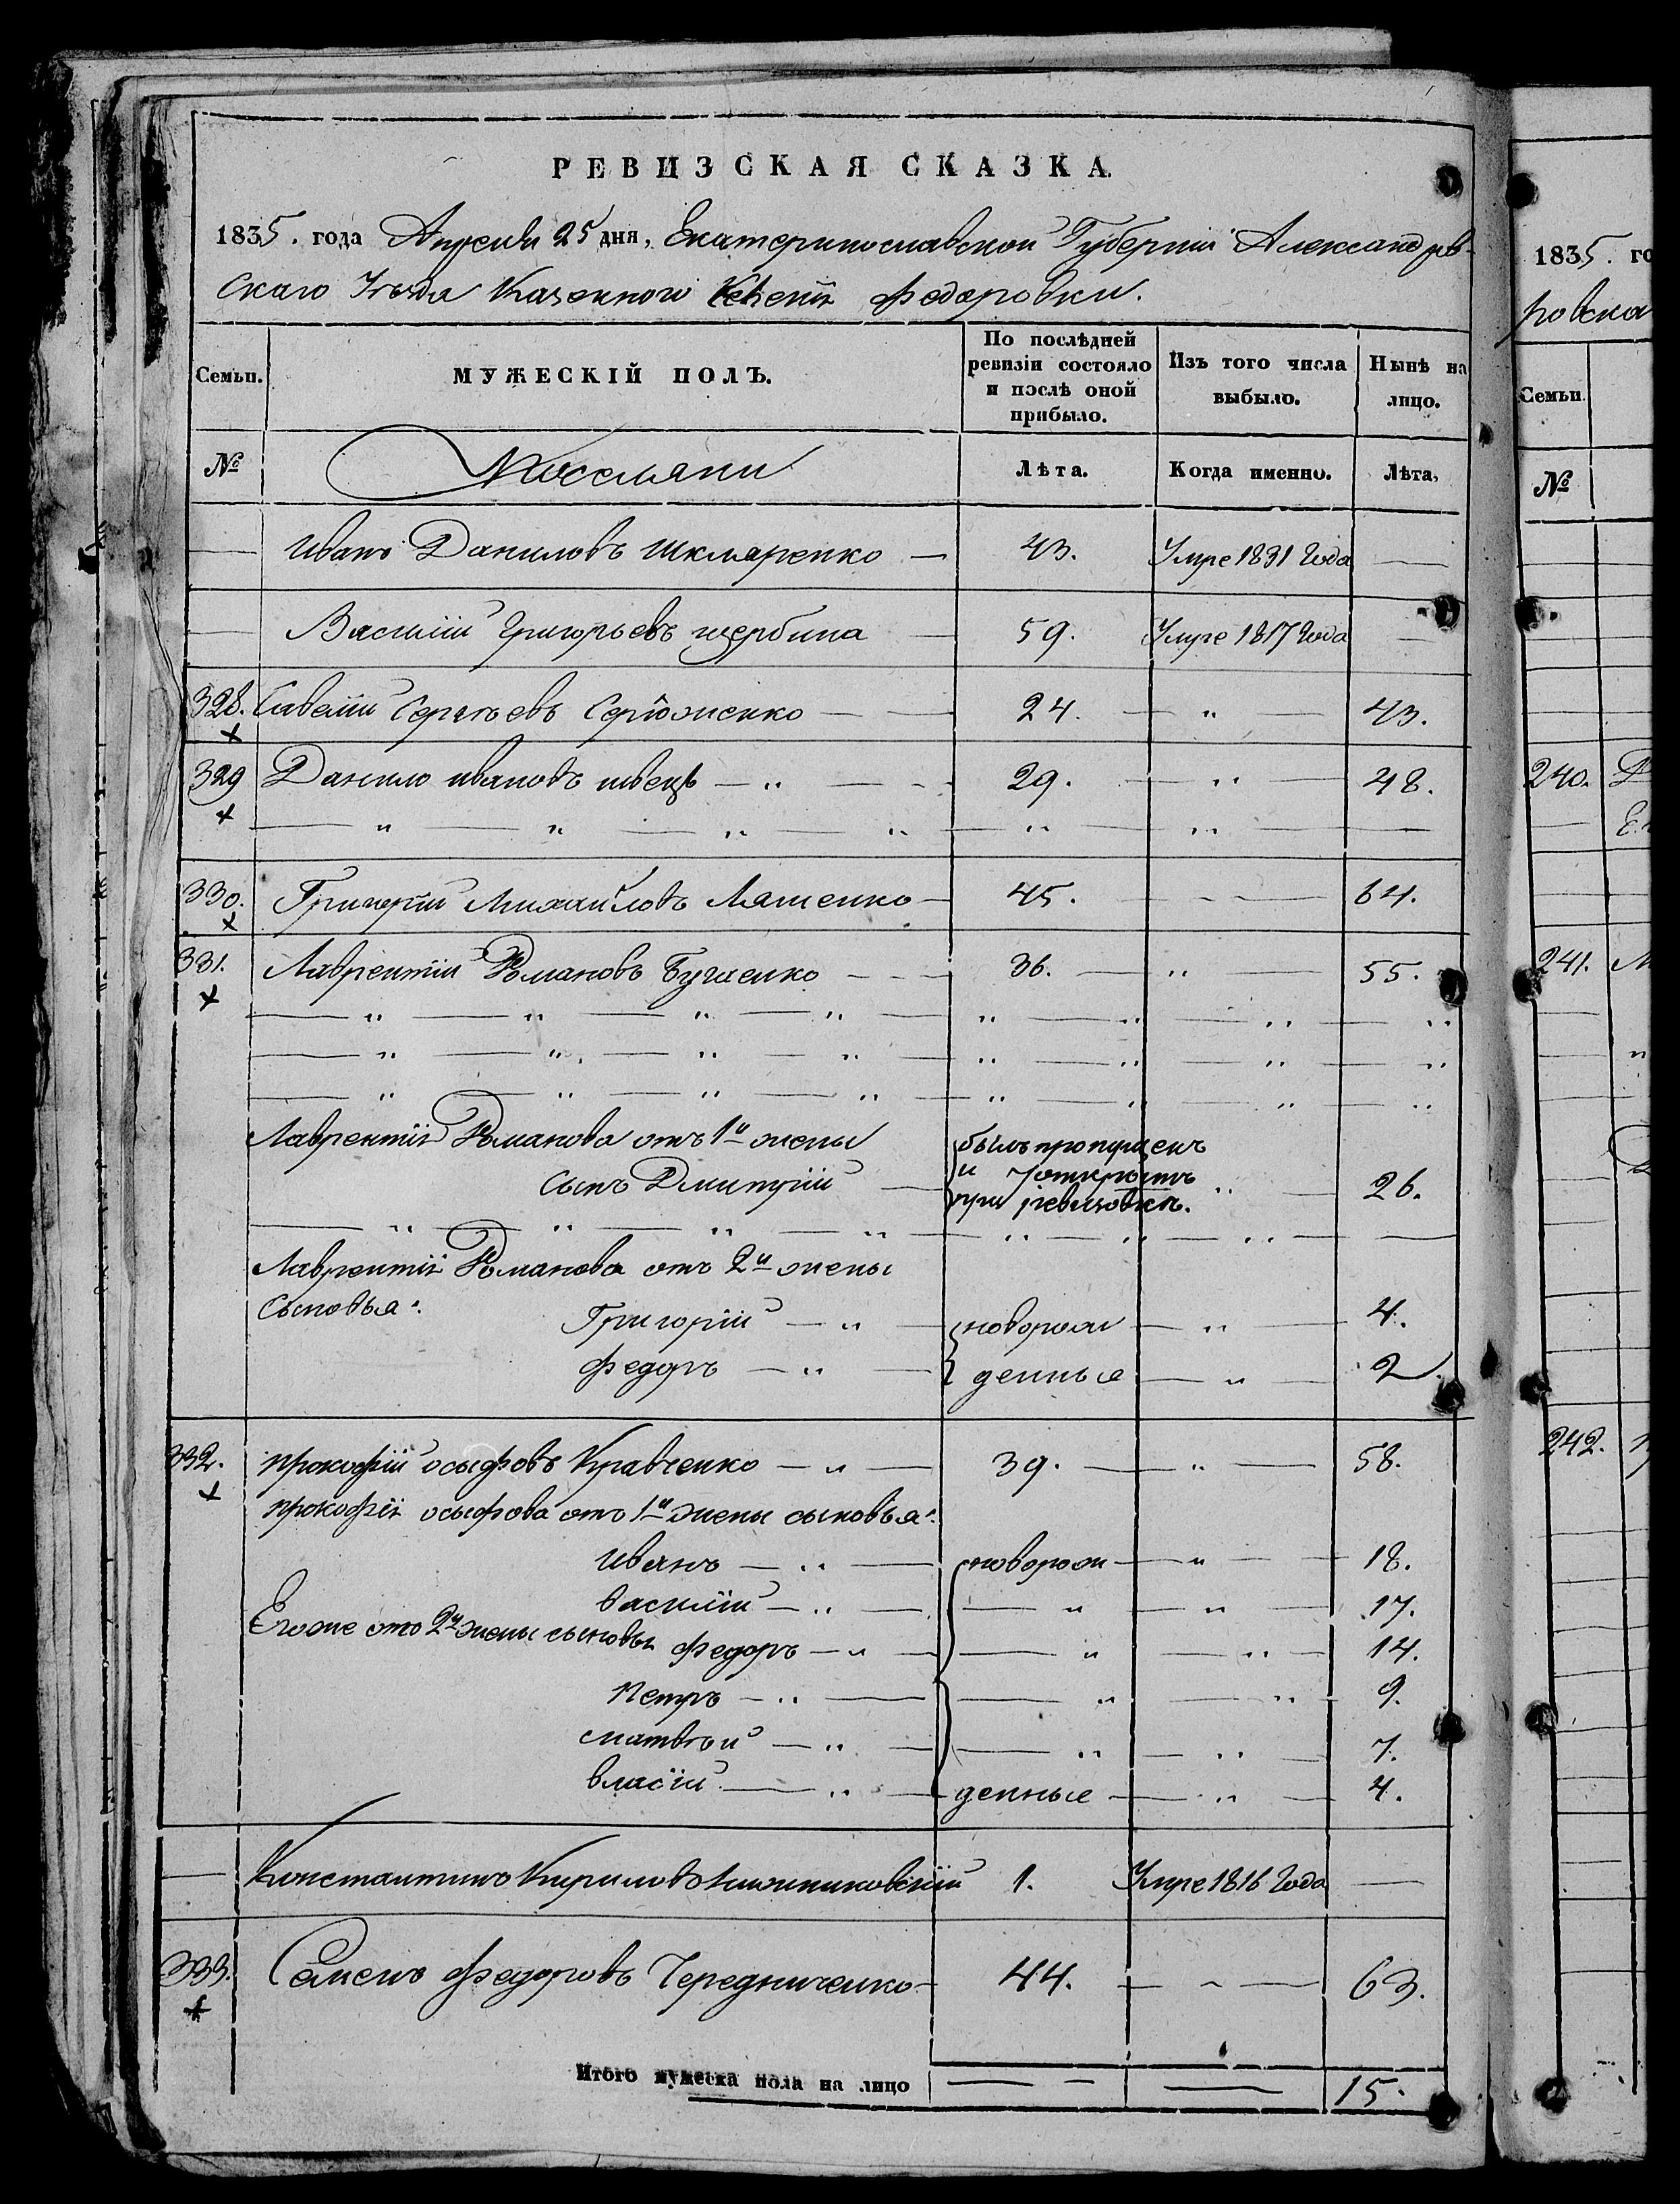 РЕВИЗСКАЯ СКАЗКА.
1835. года Апреля 25 дня, Екатеринославской Губернии Александров-
скаго Уезда Казенного Федоровки.
Семьи. МУЖЕСКІЙ ПОЛЪ. По послѣдней ревизіи состояло и послѣ оной прибыло. Изъ того числа выбыло. Нынѣ на лицо.
№ Поселяни Лѣта. Когда именно. Лѣта.
— Иванъ Даниловъ Шкляренко — 43. Умре 1831 года —
— Василии Григорьевъ щербина — 59. Умре 1817 года —
328. Савелии Сергѣевъ Серѣоженко — — 24. — " — 43.
329 Данило ивановъ швецъ — " — 29. — " — 48.
— " — " — " — " — " — " —
330. Григории Михаиловъ Ляшенко — 45. — " — 64.
331. Лаврентіи Романовъ — — 36. — " — 55.
— " — " — " — " — " — " — " — "
— " — " — " — " — " — " — " — "
— " — " — " — " — " — " — " — "
Лаврентія Романова отъ 1й жены
сынъ Дмитрій — былъ пропущенъ и открытъ при ревизовкѣ. " — 26.
— " — " — " — " — " — " — " —
Лаврентія Романова отъ 2й жены
Сыновья:
Григоріи — " — новорож — " — 4.
федоръ — " — денные — " — 2.
332. прокофіи осыфовъ Кравченко — " — 39. — " — 58.
прокофія осыфова отъ 1й жены сыновья:
иванъ — " — новорож — " — 18.
василіи — " — — " — " — 17.
Егоже отъ 2й жены сыновья федоръ — " — — " — " — 14.
Петръ — " — — " — " — 9.
матвѣи — " — — " — " — 7.
власіи — " — денные — " — 4.
— Константинъ Кириловъ 1. Умре 1816 года —
333. Семенъ федоровъ Чередниченко — 44. — " — 63.
Итого мужеска пола на лицо — — — 15.
1835. го
ровска
Семьи.
№
240.
241.
242.